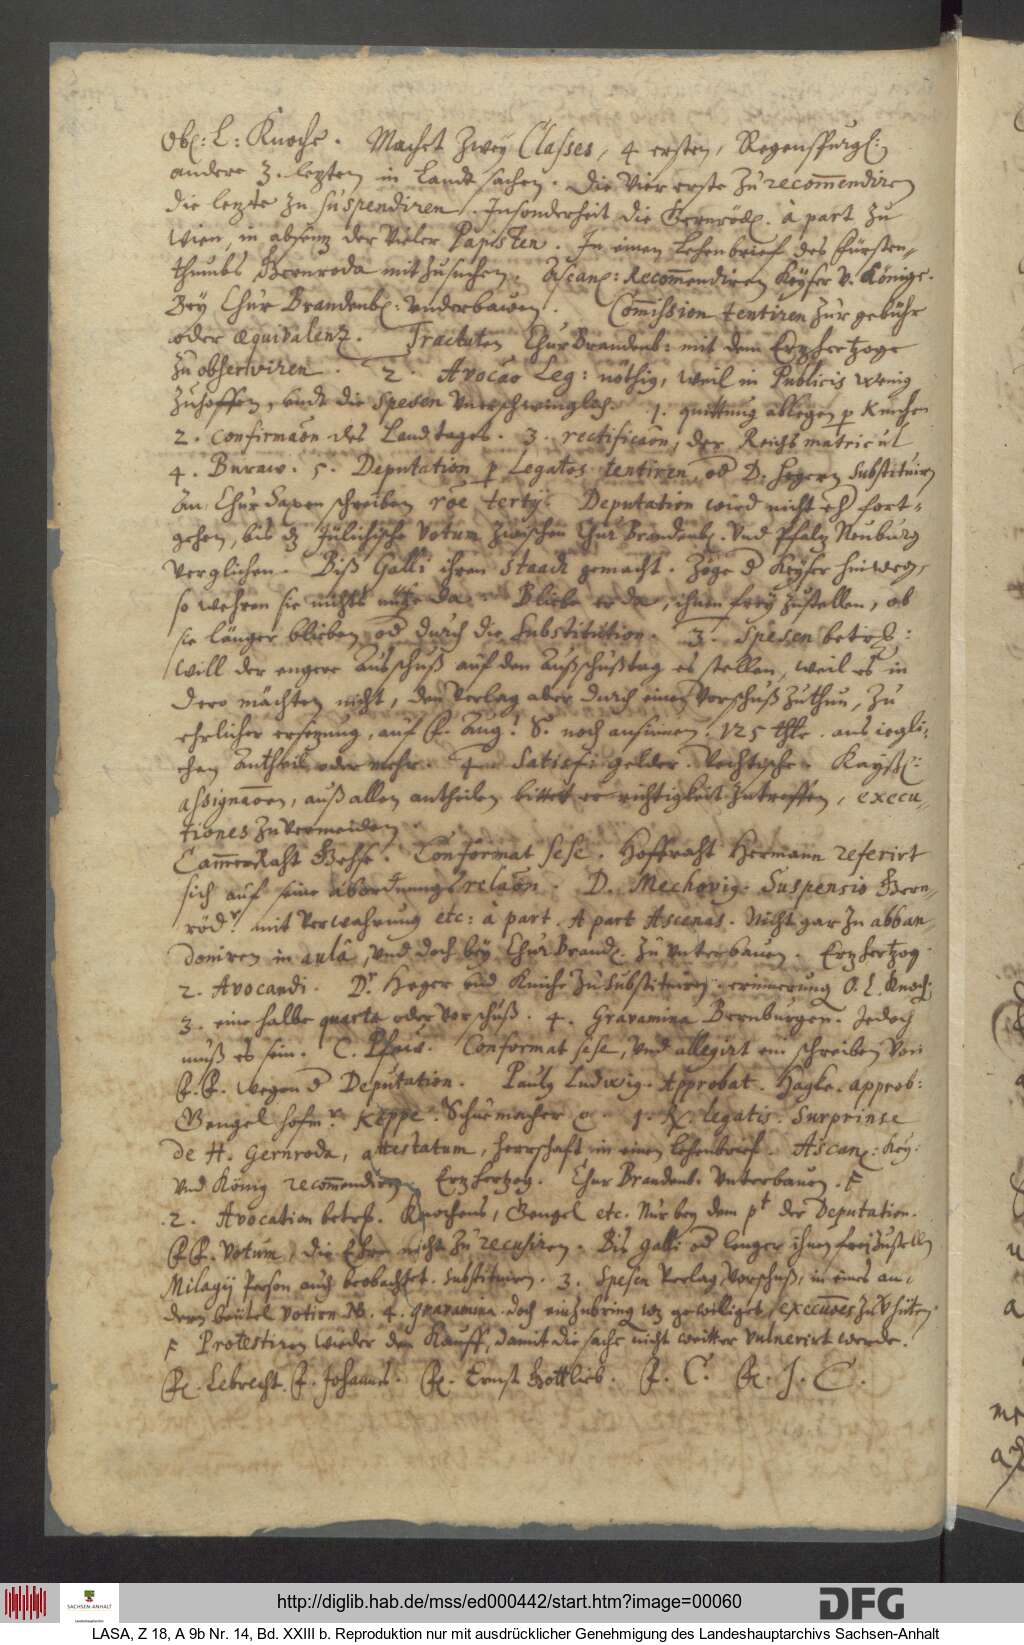 Ob: L: Knoche. Machet zwey Classes, 4 ersten, Regenspurg:
andere 3. lezten in Landtsachen. Die vier erste zu recommendiren
die lezte zu suspendiren. Insonderheit die Gernröd. à part zu
Wien, in absentz der vieler Papisten. In einen Lehenbrief des Fürsten-
thumbs Gernroda mit zusuchen. Ascan: Recommendiren Keyser v. Könige.
Bey Chur Brandenb: vnderbawen. Commission tentiren zur gebühr
oder æquivalenz. Tractaten ChurBrandenb: mit dem Erzhertzoge
zu observiren. 2. Avocão Leg: nöthig, weil in Publicis wenig
zuhoffen, vndt die spesen vnerschwinglich. 1. quittung ablegen p
2. confirmãon des Landtages. 3. rectificãon, der Reichs matricul
4. 5. Deputation p Legatos tentiren, od D: Hegern substituirn
An ChurSaxen schreiben rõe tertij. Deputation wird nicht eh fort-
gehen, bis dz Jülichische votum zwischen Chur Brandenb. vnd Pfalz Neuburg
verglichen. Biß Galli ihren Staadt gemacht. Zöge d Keyser hinweg,
so wehren sie nichts nütze da. Bliebe er da, ihnen frey zustellen, ob
sie länger blieben, od durch die Substitution. 3. Spesen betrf:
will der engere Ausschuß auf den Außschußtag es stellen, weil es in
dero mächten nicht, den verlag aber durch einen vorschuß zuthun, zu
ehrlicher ersezung, auf F. Aug: S. noch ansinnen. 125 thlr. aus iegli-
chen Antheil oder mehr. 4. Satisfa: gelder. Rechtische. Kayß:
assignãoen, auß allen antheilen bittet er richtigkeit zutreffen, execu-
tiones zuvermeiden.
CammerRaht Gehse. Conformat sese. Hoffraht Hermann referirt
sich auf seine abordnungsrelãon. D. Mechovig. Suspensio Gern-
röd: mit verwahrung etc: à part. A part Ascanas. Nicht gar zu aban-
doniren in aulâ, vnd doch bey ChurBrand. zu vnterbauen. Erzhertzog.
2. Avocandi. Dr. Heger vnd Kniche zu substituirn. erinnerung O. L. Knoch:
3. eine halbe quarta oder vorschuß. 4. Gravamina Bernburgen. Jedoch
muß es sein. C. Pfaw. Conformat sese, vnd allegirt ein schreiben von
F. F. wegen d Deputation. Pauly Ludwig. Approbat. Hagke. approb:
Bengel hofm: r. Keppe. Schumacher 1. legatis. Surprinse
de H. Gernroda, attestatum, herrschaft in einen Lehenbrief. Ascan: Key.
vnd König recommendirn. Erzhertzog. Chur Brandenb. vnterbauen. F
2. Avocation betrf. Knochens, Bengel etc. Nur bey dem pt der Deputation.
FF. votum, die Ehre nicht zu recusiren. Bis Galli od lenger ihnen frei zustelln
Milagij Person auch beobachtet. Substituiren. 3. Spesen verlag, vorschuß, in eines an-
dern beütel votirn NB. 4. gravamina doch einzubring wz gewilliget, execuões zu vhüten.
F Protestiren wieder den Kauff, damit die sache nicht weitter vulnerirt werde.
F. Lebrecht. F. Johannes. F. Ernst Gottlieb. F. C. F. J. C.
http://diglib.hab.de/mss/ed000442/start.htm?image=00060
SACHSEN-ANHALT
DFG
LASA, Z 18, A 9b Nr. 14, Bd. XXIII b. Reproduktion nur mit ausdrücklicher Genehmigung des Landeshauptarchivs Sachsen-Anhalt